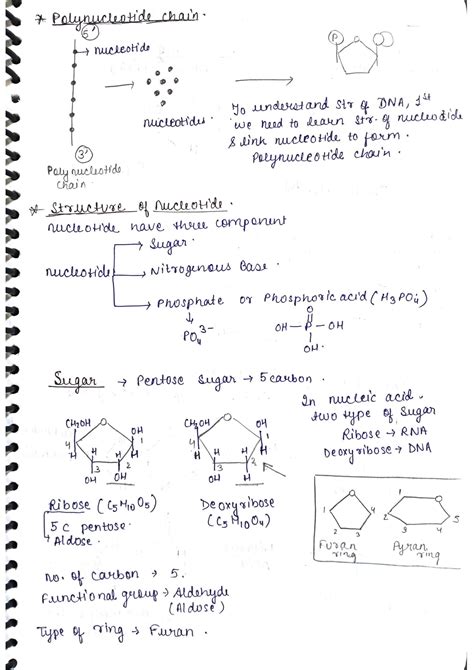 * Polynucleotide chain.
5'
nucleotide
P
nucleotides
To understand str of DNA, 1st
we need to learn str. of nucleotide
& link nucleotide to form
Polynucleotide chain.
3'
Polynucleotide
chain
* Structure of Nucleotide.
nucleotide have three component
→ Sugar.
nucleotide → Nitrogenous Base.
→ Phosphate or Phosphoric acid (H3PO4)
PO4 3-
O
OH-P-OH
OH.
Sugar → Pentose Sugar → 5 carbon.
In nucleic acid.
two type of Sugar
Ribose → RNA
Deoxyribose → DNA
CH2OH O OH
4 H H H H 1
3 2
OH OH
CH2OH O OH
4 H H H H 1
3 2
OH H
Ribose (C5H10O5)
5 C pentose.
Aldose.
Deoxyribose
(C5H10O4)
O
1 4
2 3
Furan
ring
O
1 5
2 3 4
Pyran
ring
no. of carbon → 5.
Functional group → Aldehyde
(Aldose)
Type of ring → Furan.